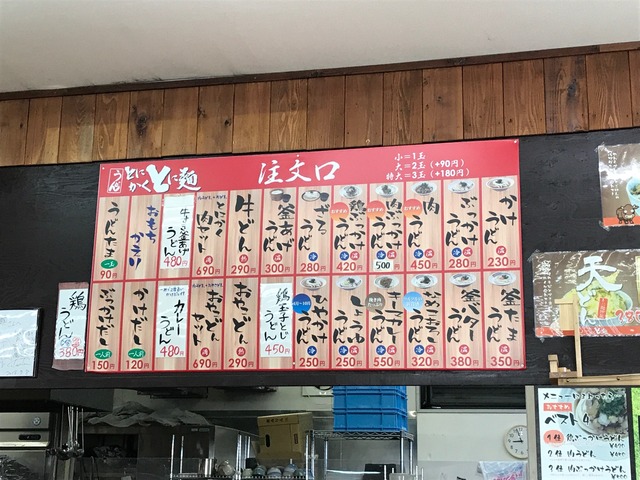 うどん
とにかくとに麺
注文口
小＝1玉
大＝2玉（+90円）
特大＝3玉（+180円）
かけうどん
温
230円
ぶっかけうどん
冷 温
280円
肉うどん
冷 温
450円
おすすめ
肉ぶっかけうどん
冷 温
500
おすすめ
鶏ぶっかけうどん
冷 温
420円
ざるうどん
冷
280円
釜あげうどん
300円
牛どん
290円
とにかく肉セット
690円
うどん
480円
おもちからい
うどんたま
一玉
90円
釜たまうどん
温
350円
釜バターうどん
温
380円
320円
カレーうどん
550円
しょうゆうどん
冷 温
250円
ひやかけうどん
冷
250円
鶏玉子とじうどん
450円
おやこどん
290円
おやこどんセット
690円
カレーうどん
480円
かけだし
一人前
120円
ぶっかけだし
一人前
150円
鶏うどん
380円
天どん
おすすめ
ベスト4
1位 鶏ぶっかけうどん
2位 肉うどん
3位 肉ぶっかけうどん